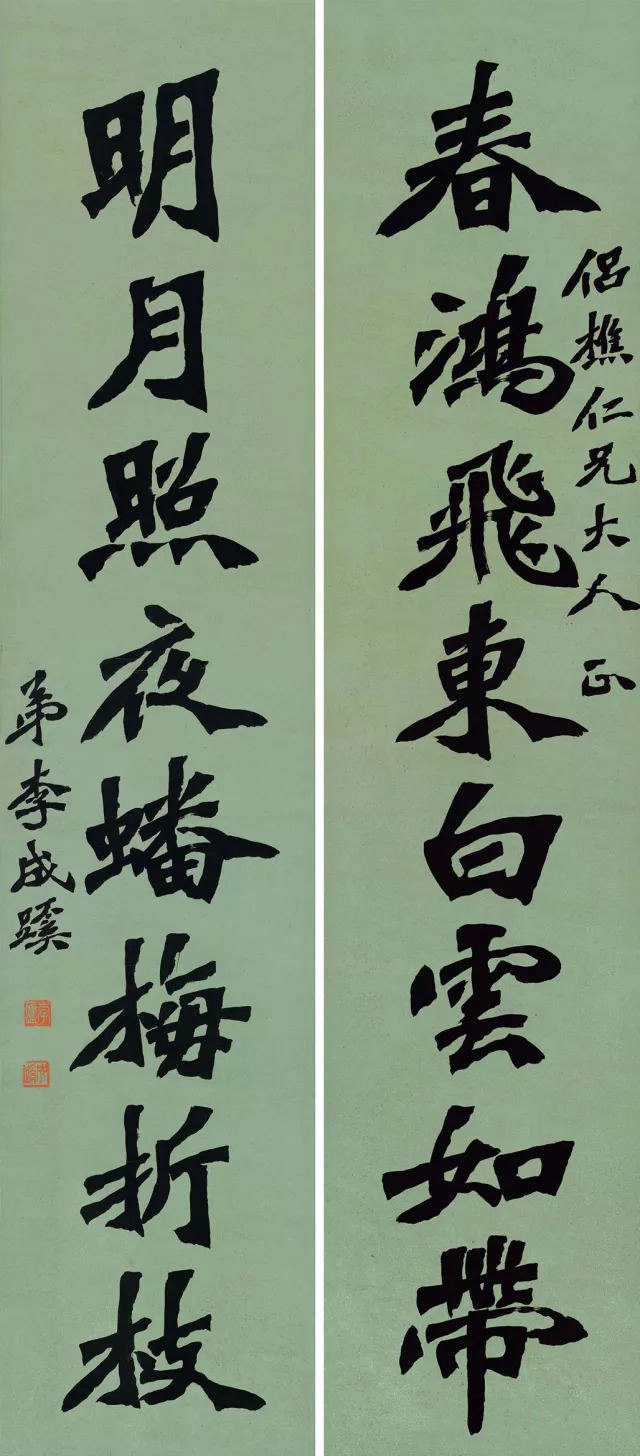 春鴻飛東白雲如帶
侶樵仁兄大人 正
明月照夜蟠梅折枝
弟李成蹊